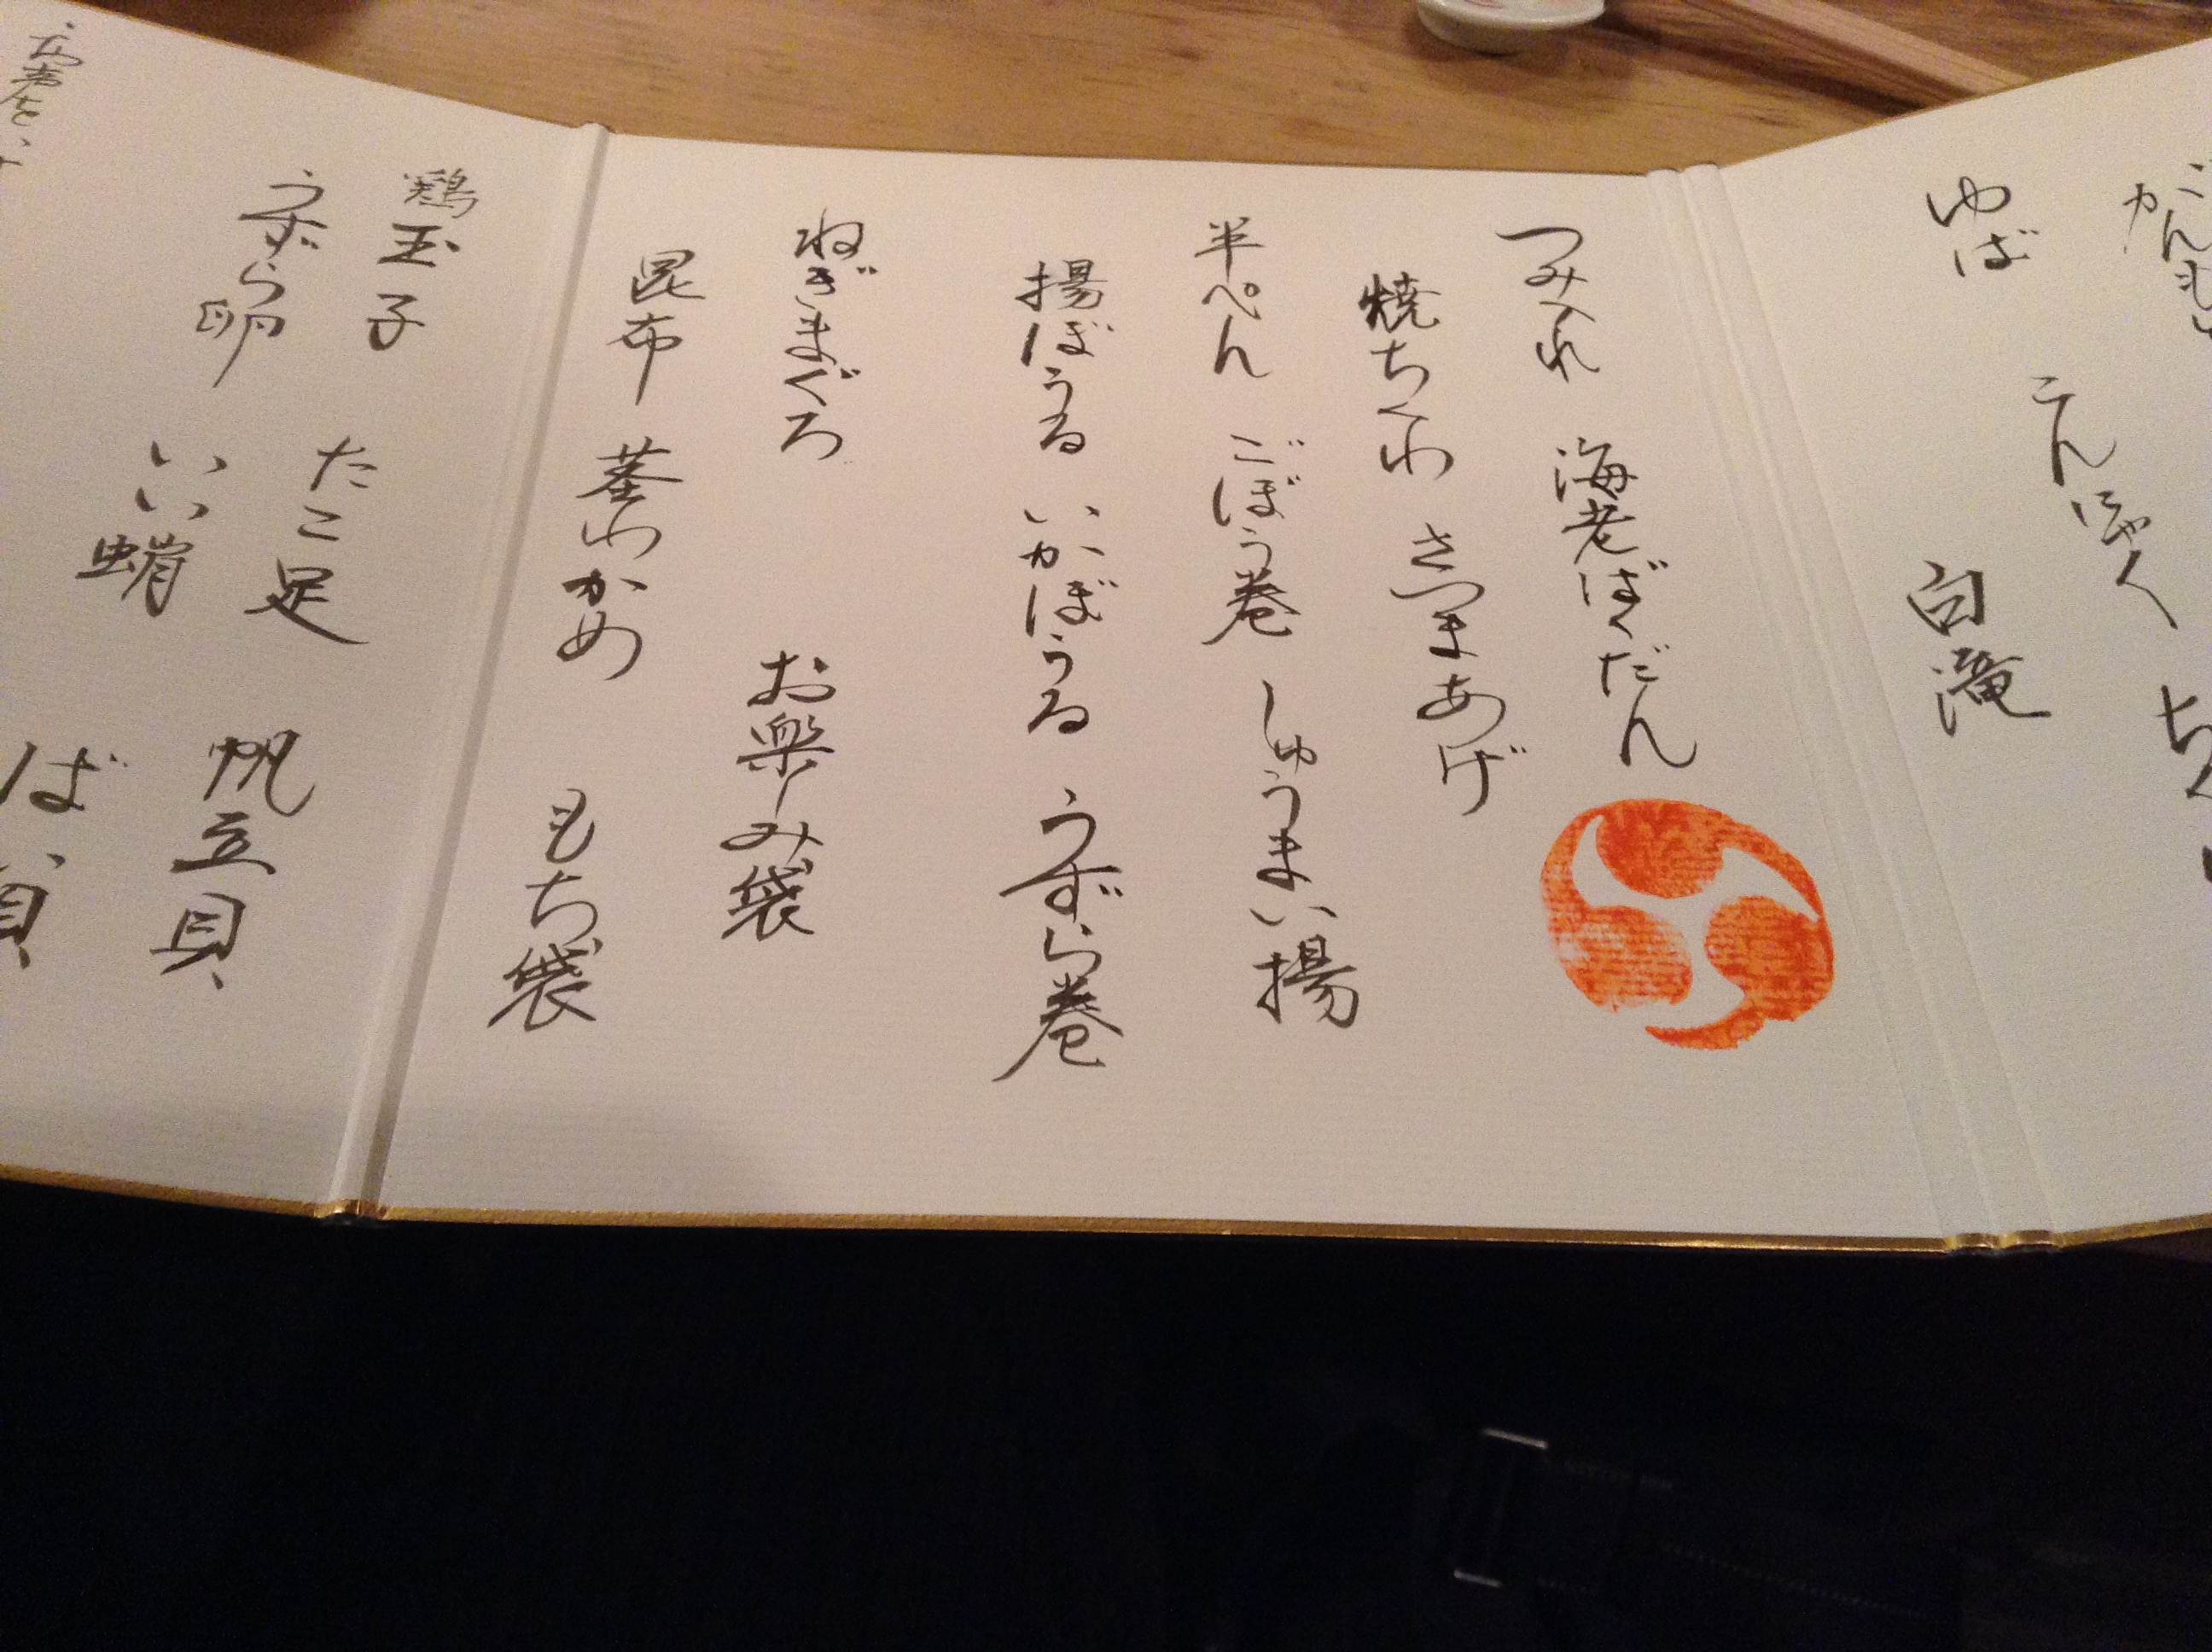 ゆば こんにゃく
白滝
つみれ 海老ばくだん
焼ちくわ さつまあげ
半ぺん ごぼう巻 しゅうまい揚
揚ぼうる いかぼうる うずら巻
ねぎまぐろ お楽しみ袋
昆布 茎わかめ もち袋
鶏玉子 たこ足 帆立貝
うずら卵 いい蛸 ばい貝